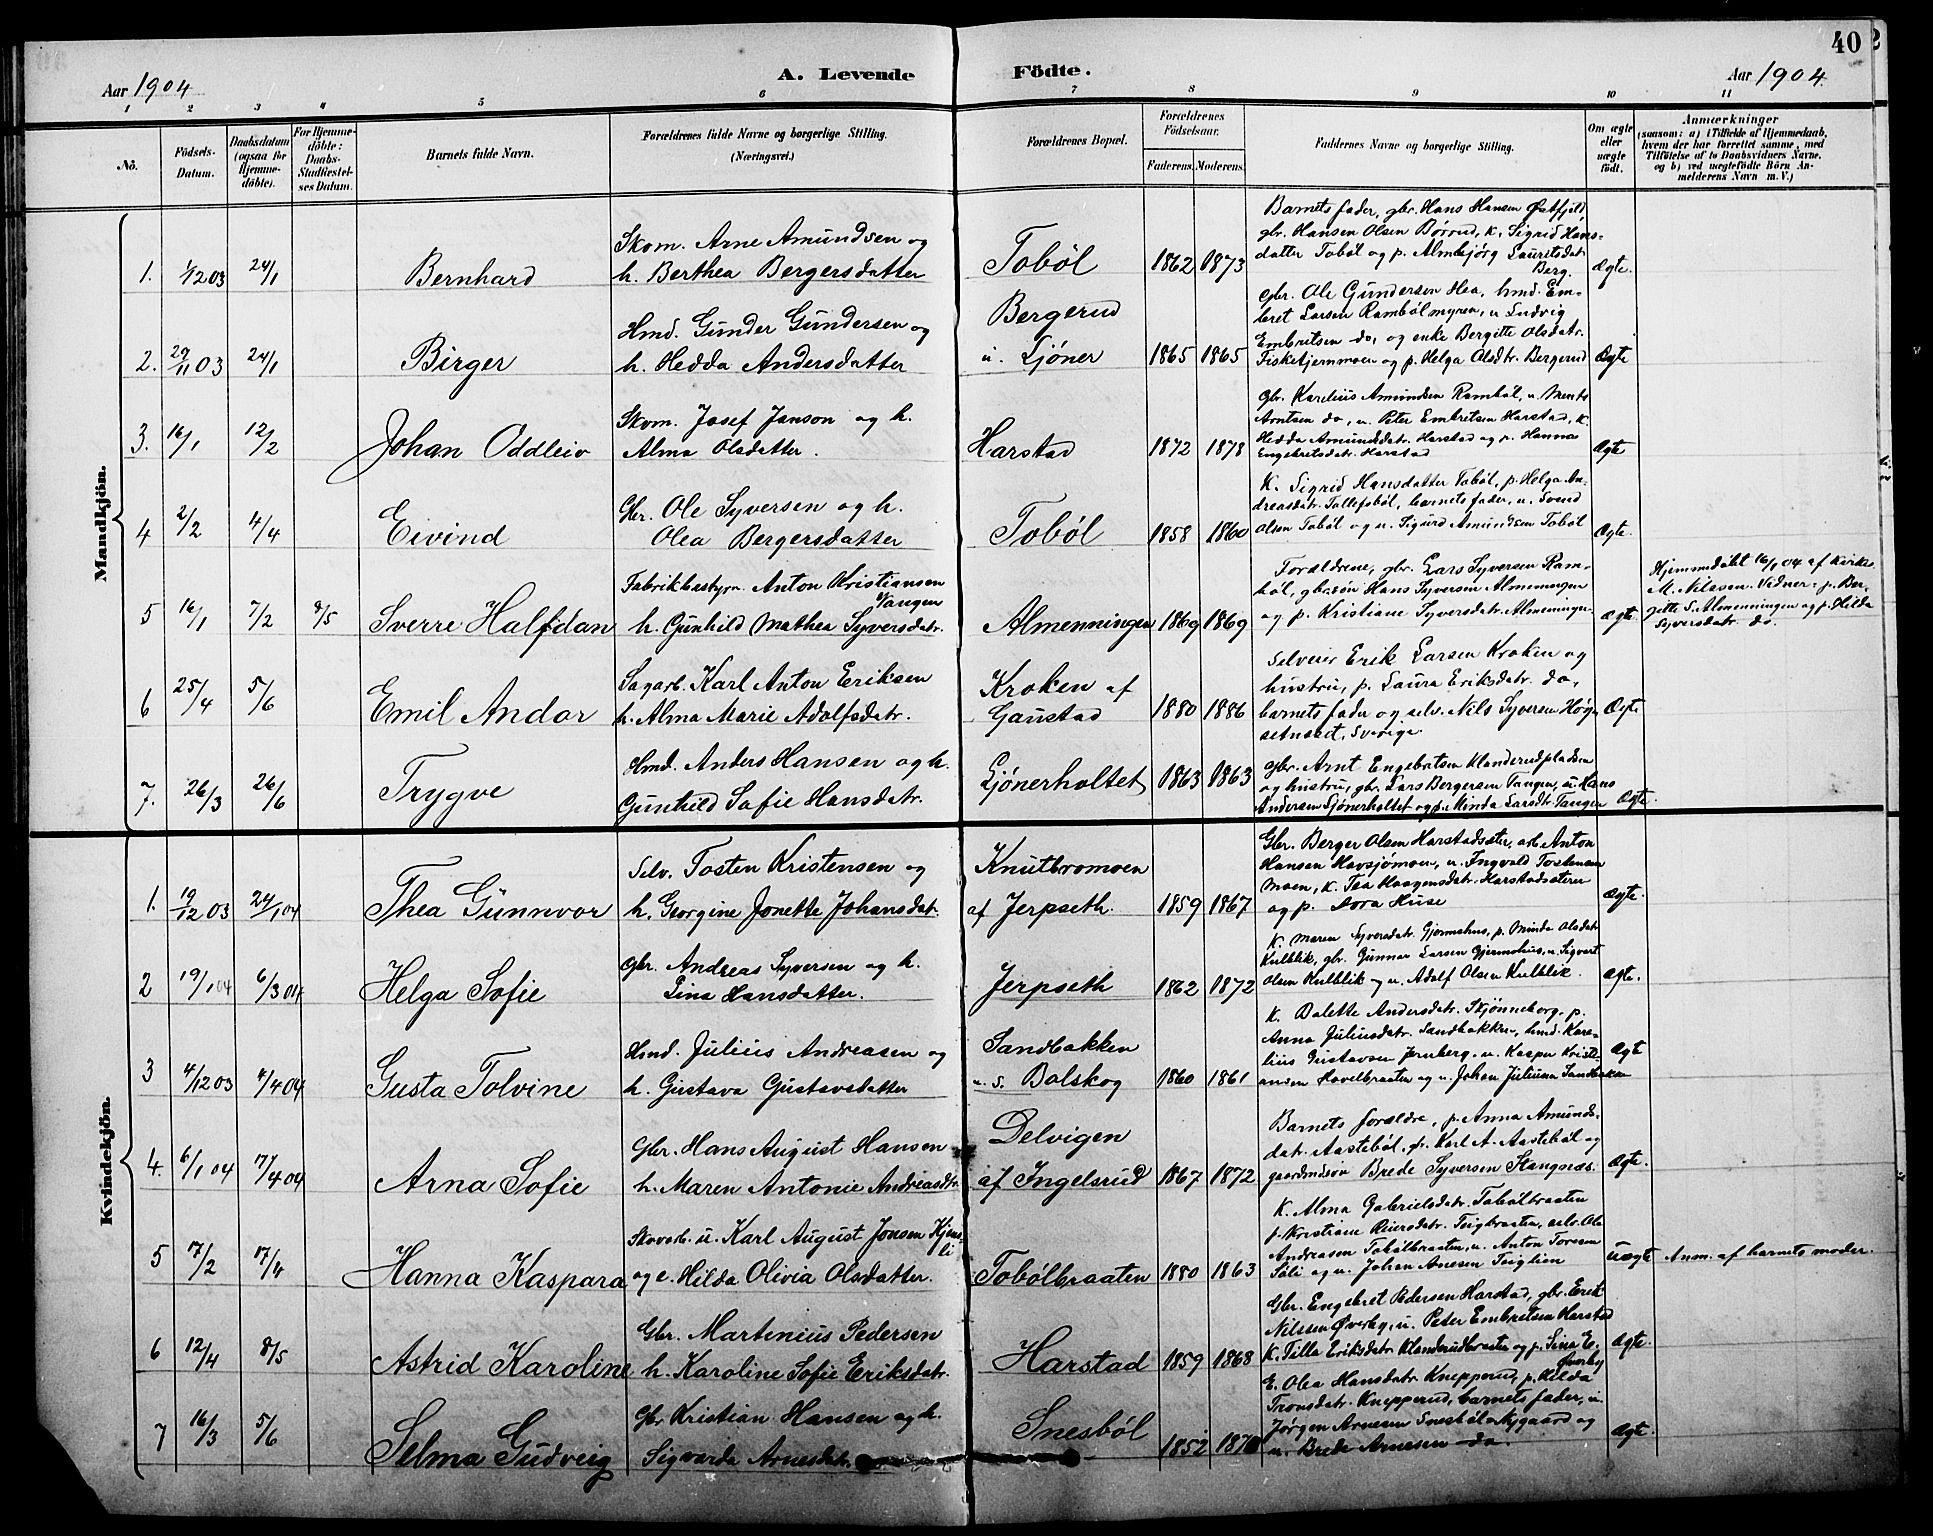 40
Aar 1904
A. Levende Födte.
Aar 1904.
1 2 3 4 5 6 7 8 9 10 11
No.
Födsels-Datum.
Daabsdatum (ogsaa for Hjemmedöbte).
For Hjemmedöbte: Daabs-Stadfæstelses Datum.
Barnets fulde Navn.
Forældrenes fulde Navne og borgerlige Stilling. (Næringsvei.)
Forældrenes Bopæl.
Forældrenes Födselsaar.
Faderens. Moderens.
Faddernes Navne og borgerlige Stilling.
Om ægte eller uægte født.
Anmærkninger
(saasom: a) i Tilfælde af Hjemmedaab,
hvem der har forrettet samme, med
Tilføielse af to Daabsvidners Navne,
og b) ved uægtefödte Börn An-
melderens Navn m. V.)
Mandkjön.
1. 1/12 03 24/1 Bernhard
Skom. Arne Amundsen og
h. Berthea Bergersdatter
Toböl 1862 1873
Barnets fader, gbr. Hans Hansen Østfjeld,
gbr. Hansen Olsen Börrud, k. Sigrid Hans-
datter Toböl og p. Almbjörg Lauritsdat
Berg.
Ægte.
2. 29/11 03 24/1 Birger
Hmd. Gunder Gundersen og
h. Hedda Andersdatter
Bergerud
u. Sjöner 1865 1865
Gbr. Ole Gundersen Hea, hmd. Em-
bret Larsen Rambölmyren, u Ludvig
Embretsen do, og enke Bergitte Olsdatr.
Fisketjernmoen og p. Helga Olsdtr. Bergerud
Ægte
3. 16/1 12/2 Johan Oddleiv
Skom. Josef Janson og h.
Alma Olsdatter.
Harstad 1872 1878
Gbr. Karelius Amundsen Ramböl, u. Mentz
Arntsen do, u. Peter Embretsen Harstad, k.
Hedda Amundsdatr. Harstad og p. Hanna
Engebretsdatr. Harstad
Ægte
4 2/2 4/4 Eivind
Gbr. Ole Syversen og h.
Olea Bergersdatter
Toböl 1858 1860
K. Sigrid Hansdatter Toböl, p. Helga An-
dreasdatr. Tolleföböl, barnets fader, u. Svend
Olsen Toböl og u. Sigurd Amundsen Toböl
Ægte.
5 16/1 7/2 8/5 Sverre Halfdan
Fabrikbestyr. Anton Kristiansen
Vangen
h. Gunhild Mathea Syversdatr.
Almenningen 1869 1869
Forældrene, gbr. Lars Syversen Ram-
böl, gbrsön Hans Syversen Almenningen
og p. Kristiane Syversdatr. Almenningen
Ægte
Hjemmedöbt 16/1 04 af kirkes.
M. Nilssen. Vidner: p. Ber-
gitte S. Almenningen og p. Hilda
Syversdatr. do.
6 25/4 5/6 Emil Andor
Sagarb. Karl Anton Eriksen
h. Alma Marie Adolfsdatr.
Kroken af
Gaustad 1880 1886
Selveier Erik Larsen Kroken og
hustru, p. Laura Eriksdatr. do,
barnets fader og selv. Nils Syversen Högs-
setnæet, Sverige.
Ægte
7. 26/3 26/6 Trygve
Hmd. Anders Hansen og h.
Gunhild Sofie Hansdatr.
Sjönerholtet 1863 1863
Gbr. Arnt Engebretsen Klanderudpladsen
og hustru, gbr. Lars Bergersen Tangen, u. Hans
Andersen Sjönerholtet og p. Minda Larsdtr. Tangen
Ægte.
Kvindekjön.
1. 19/12 03 24/1 04 Thea Gunnvor
Selv. Tosten Kristensen og
h. Georgine Jonette Johansdatr.
Knutbromoen
af Jerpseth. 1859 1867
Gbr. Berger Olsen Harstadsæter, arb. Anton
Hansen Havsjömoen, u. Ingvald Tostensen
Moen, k. Tea Haagensdatr. Harstadsæteren
og p. Dora Huse
Ægte.
2 19/1 04 6/3 04 Helga Sofie
Gbr. Andreas Syversen og h.
Lina Hansdatter.
Jerpseth 1862 1872
K. Maren Syversdatr. Gjermshus, p. Minda Olsdatr
Kulblik, gbr. Gunnar Larsen Gjermshus, u. Sigvart
Olsen Kulblik og u. Adolf Olsen Kulblik.
Ægte.
3 4/12 03 4/4 04 Gusta Tolvine
Hmd. Julius Andreasen og
h. Gustava Gustavsdatter
Sandbakken
u. s. Bolskog 1860 1861
K. Dalette Andersdatr. Skjönneborg, p.
Anna Juliusdatr. Sandbakken, hmd. Kare-
lius Gustavsen Jernberg, u. Kasper Kristi-
ansen Havelbraaten og u. Johan Juliusen Sandbakken
Ægte
4. 6/1 04 17/4 04 Arna Sofie
Gbr. Hans August Hansen
h. Maren Antonie Andreasdtr.
Delvigen
af Ingelsrud 1867 1872
Barnets forældre, p. Anna Amunds-
dat. Aasteböl, fr. Karl A. Aasteböl og
gaardmdsön Brede Syversen Stangnæs.
Ægte.
5 7/2 17/4 Hanna Kaspara
Skovarb. u. Karl August Jonsen Kjens-
li
og e. Hilda Olivia Olsdatter.
Tobölbraaten 1880 1863
K. Alma Gabrielsdatr. Tobölbraaten
p. Kristiane Reiersdatr. Teigbraaten, selv. Ole
Andreasen Tobölbraaten, u. Anton Toresen
Söli og u. Johan Arnesen Teiglien
Uægte
Anm. af barnets moder.
6 12/4 8/5 Astrid Karoline
Gbr. Martinius Pedersen
h. Karoline Sofie Eriksdatr.
Harstad 1859 1868
Gbr. Engebret Pedersen Harstad, gbr. Erik
Nilssen Øverby, u. Peter Embretsen Harstad
K. Tilla Eriksdatr. Klanderudbraaten og p. Lina E.
Øverby
Ægte.
7 16/3 5/6 Selma Gudveig
Gbr Kristian Hansen og h.
Sigvarda Arnesdatr.
Snesböl 1852
E. Olea Hansdatr. Knepperud, p. Hilda
Tronsdatr. Knepperud, barnets fader, u.
Jørgen Arnesen Snesböl Nygaard og
u. Brede Arnesen do.
Ægte.